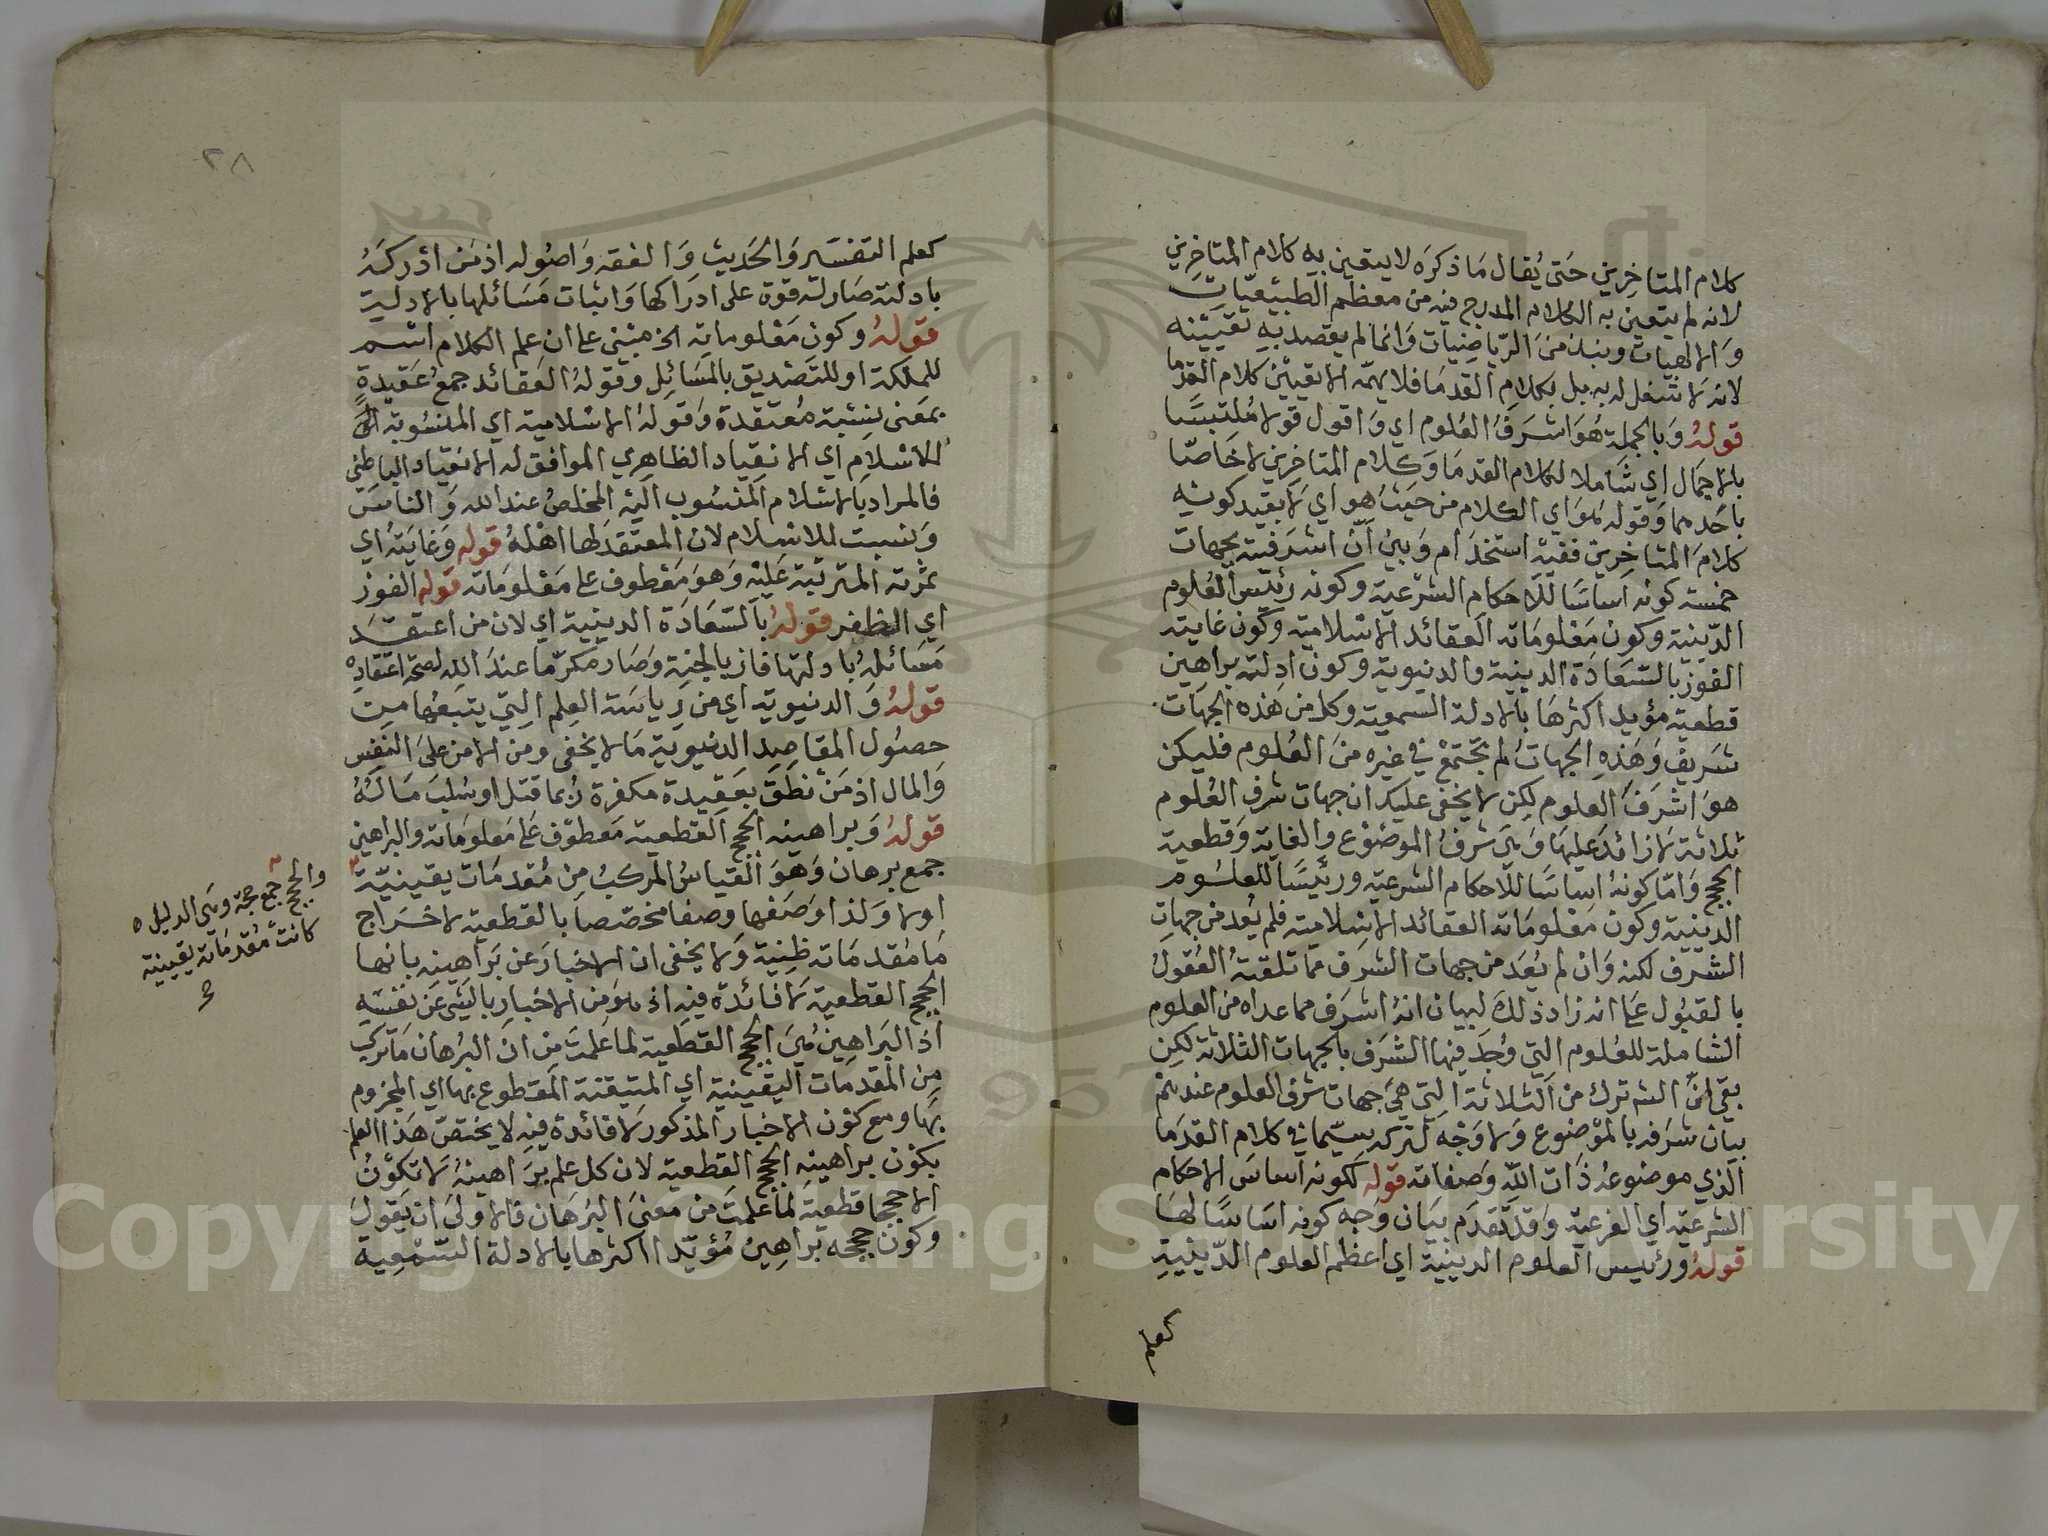 كلام المتاخرين حتى يقال ما ذكره لا يتعين به كلام المتاخرين
لانه لم يتعين به الكلام المدرج فيه من معظم الطبيعيات
والالهيات ونبذ من الرياضيات وانما لم يقصد به تعيينه
لانه لا شغل له به بل بكلام القدما فلا يهمه الا تعيين كلام القدما
قوله وبالجملة هو اشرف العلوم اي واقول قولا ملتبسا
بالاجمال اي شاملا لكلام القدما وكلام المتاخرين لا خاصا
باحدهما وقوله هو اي الكلام من حيث هو اي لا بقيد كونه
كلام المتاخرين ففيه استخدام وبين ان اشرفيته بجهات
خمسة كونه اساسا للاحكام الشرعية وكونه رئيس العلوم
الدينية وكون معلوماته العقائد الاسلامية وكون غايته
الفوز بالسعادة الدينية والدنيوية وكون ادلته براهين
قطعية مؤيد اكثرها بالادلة السمعية وكلا من هذه الجهات
شريف وهذه الجهات لم تجتمع في غيره من العلوم فليكن
هو اشرف العلوم لكن لا يخفى عليك ان جهات شرف العلوم
ثلاثة لا زائد عليها وهي شرف الموضوع والغاية وقطعية
الحجج واما كونه اساسا للاحكام الشرعية ورئيسا للعلوم
الدينية وكون معلوماته العقائد الاسلامية فلم يعد من جهات
الشرف لكنه وان لم يعد من جهات الشرف مما تلقته العقول
بالقبول على انه زاد ذلك لبيان انه اشرف مما عداه من العلوم
الشاملة للعلوم التي وجد فيها الشرف بالجهات الثلاثة لكن
بقي ان الش ترك من الثلاثة التي هي جهات شرف العلوم عندهم
بيان شرفه بالموضوع ولا وجه لتركه سيما في كلام القدما
الذي موضوعه ذات الله وصفاته قوله لكونه اساس الاحكام
الشرعية اي الفرعية وقد تقدم بيان وجه كونه اساسا لها
قوله ورئيس العلوم الدينية اي اعظم العلوم الدينية
كعلم
٢٨
كعلم التفسير والحديث والفقه واصوله اذ من ادركه
بادلته صار له قوة على ادراكها واثبات مسائلها بالادلة
قوله وكون معلوماته الخ مبني على ان علم الكلام اسم
للملكة او للتصديق بالمسائل وقوله العقائد جمع عقيدة
بمعنى نسبة معتقدة وقوله الاسلامية اي المنسوبة
للاسلام اي الانقياد الظاهري الموافق له الانقياد الباطني
فالمراد بالاسلام المنسوب اليه المخلص عند الله والناس
ونسبت للاسلام لان المعتقد لها اهله قوله وغايته اي
ثمرته المترتبة عليه وهو معطوف على معلوماته قوله الفوز
اي الظفر قوله بالسعادة الدينية اي لان من اعتقد
مسائله بادلتها فاز بالجنة وصار مكرما عند الله لصحة اعتقاده
قوله والدنيوية اي من رياسة العلم التي يتبعها من
حصول المقاصد الدنيوية ما لا يخفى ومن الامن على النفس
والمال اذ من نطق بعقيدة مكفرة ربما قتل او سلب ماله
قوله وبراهينه الحجج القطعية معطوف على معلوماته والبراهين
جمع برهان وهو القياس المركب من مقدمات يقينية
اولا ولذا وصفها وصفا مخصصا بالقطعية لاخراج
ما مقدماته ظنية ولا يخفى ان الاخبار عن براهينه بانها
الحجج القطعية لا فائدة فيه اذ هو من الاخبار بالشي عن نفسه
اذ البراهين هي الحجج القطعية لما علمت من ان البرهان ما تركب
من المقدمات اليقينية اي المتيقنة المقطوع بها اي المجزوم
بها ومع كون الاخبار المذكور لا فائدة فيه لا يختص هذا العلم
بكون براهينه الحجج القطعية لان كل علم براهينه لا تكون
الا حججا قطعية لما علمت من معنى البرهان فالاولى ان يقول
وكون حججه براهين مؤيدا اكثرها بالادلة السمعية
والحجج جمع حجة وهي الدليل
كانت مقدماته يقينية
صح
Copyright © King Saud University
957